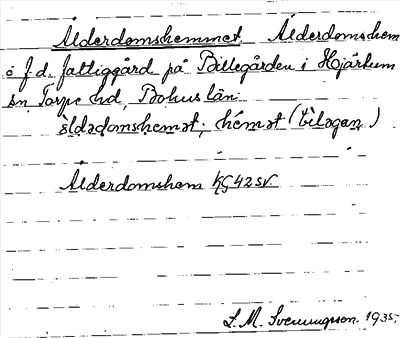 Ålderdomshemmet. Ålderdomshem
o f.d. fattiggård på Billegården i Hjärtum
sn, Torpe hd, Bohus län.
åldədomshemət; hémət (bìləgan)
Ålderdomshem KG 42 SV.
L. M. Svenungsson. 1935.